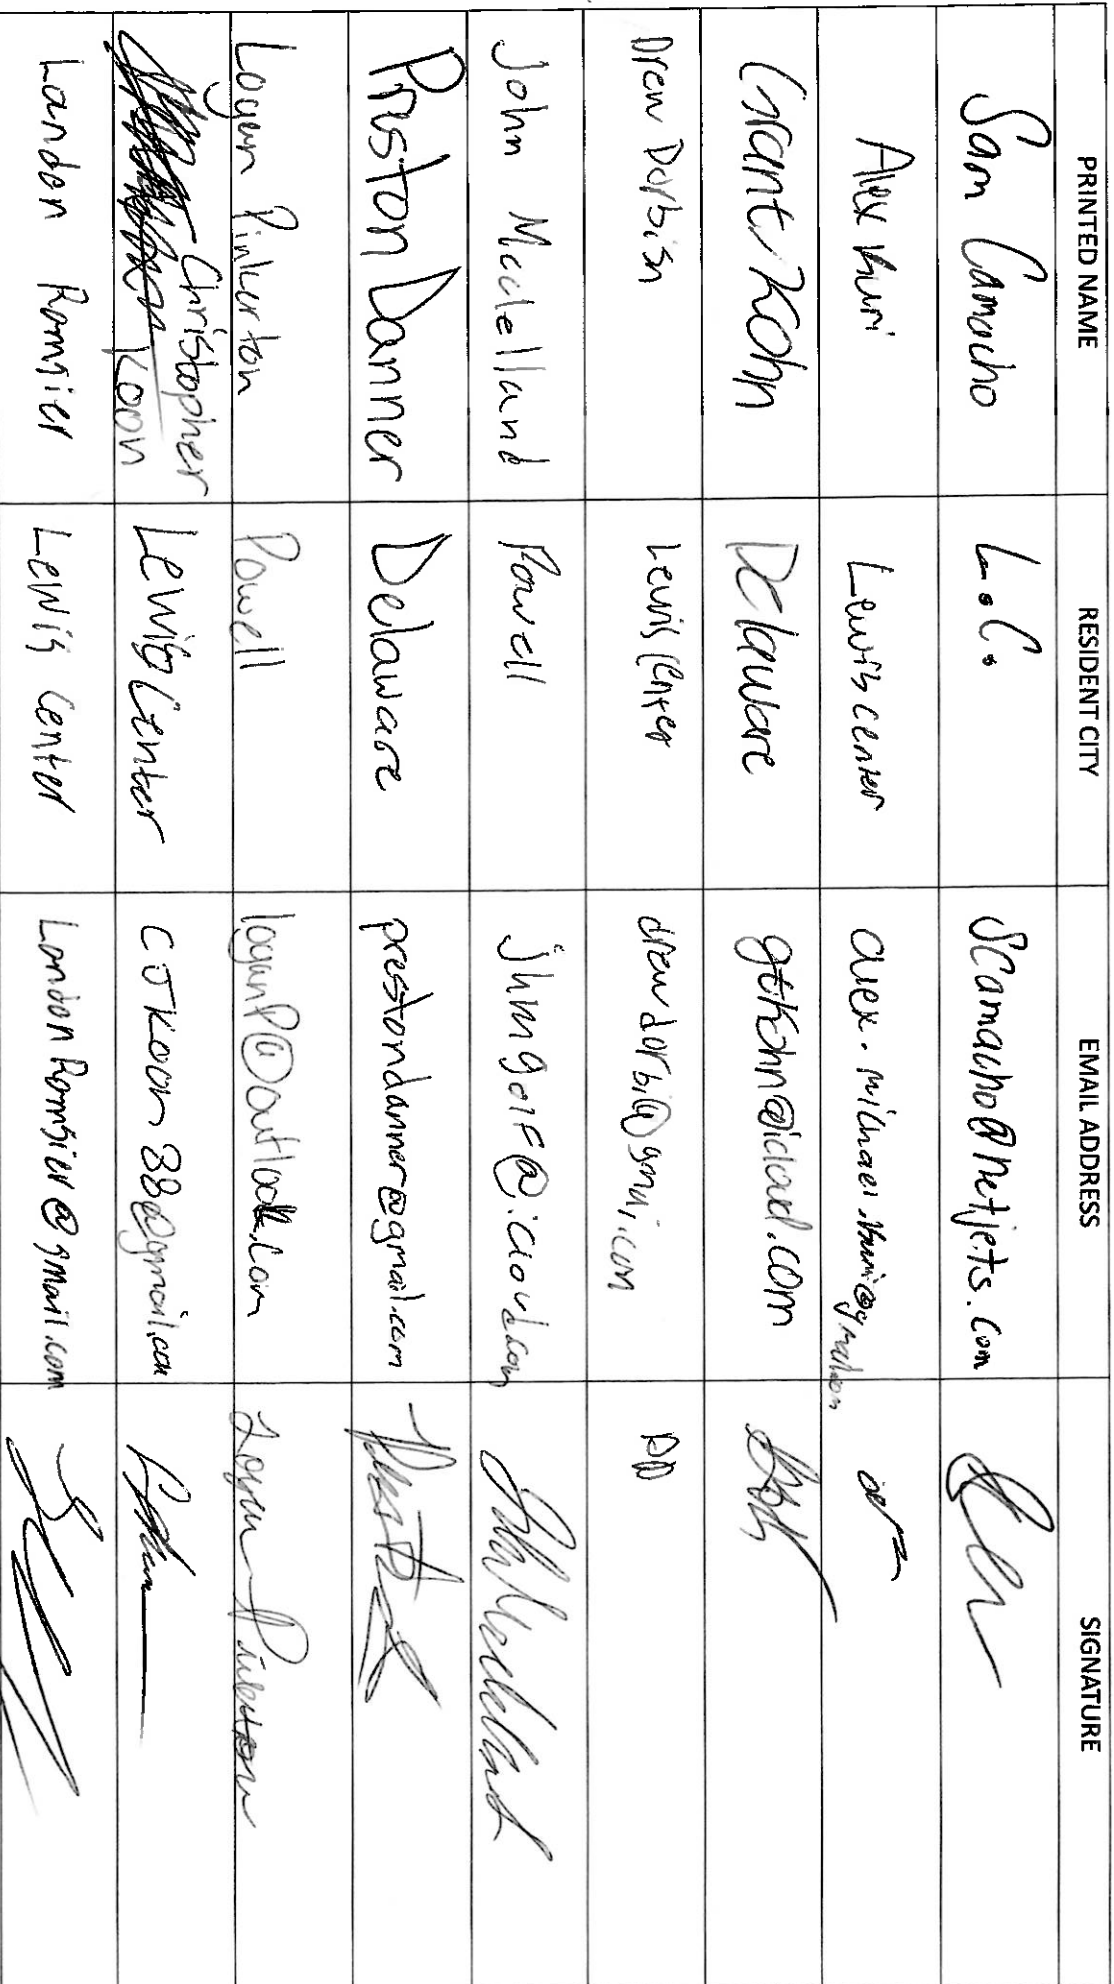 PRINTED NAME RESIDENT CITY EMAIL ADDRESS SIGNATURE
Sam Camacho L.C. Scamacho@netjets.com
Alex Kuri Lewis center alex.michael.kuri@gmail.com
Grant Kohn Delaware gtkohn@icloud.com
Drew Dorbish Lewis Center drewdorbi@gmai.com DD
John Maclelland Powell jhmgolf@icloud.com
Preston Danner Delaware prestondanner@gmail.com
Logan Pinkerton Powell loganP@outlook.com Logan Pinkerton
Christopher Koon Lewis Center CJKoon38@gmail.com
Landon Romsier Lewis Center LandonRomsier@gmail.com